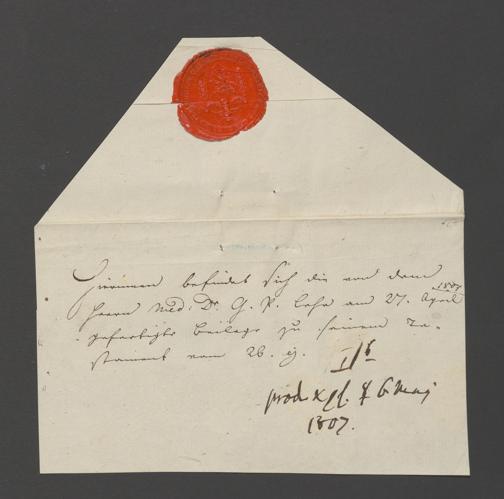 Hierinnen befindet sich die von dem
Herrn Med. Dr. G. P. am 27. April 1807
gefertigte Beilage zu seinem Te-
stament vom 26. ej.
prod
1807.